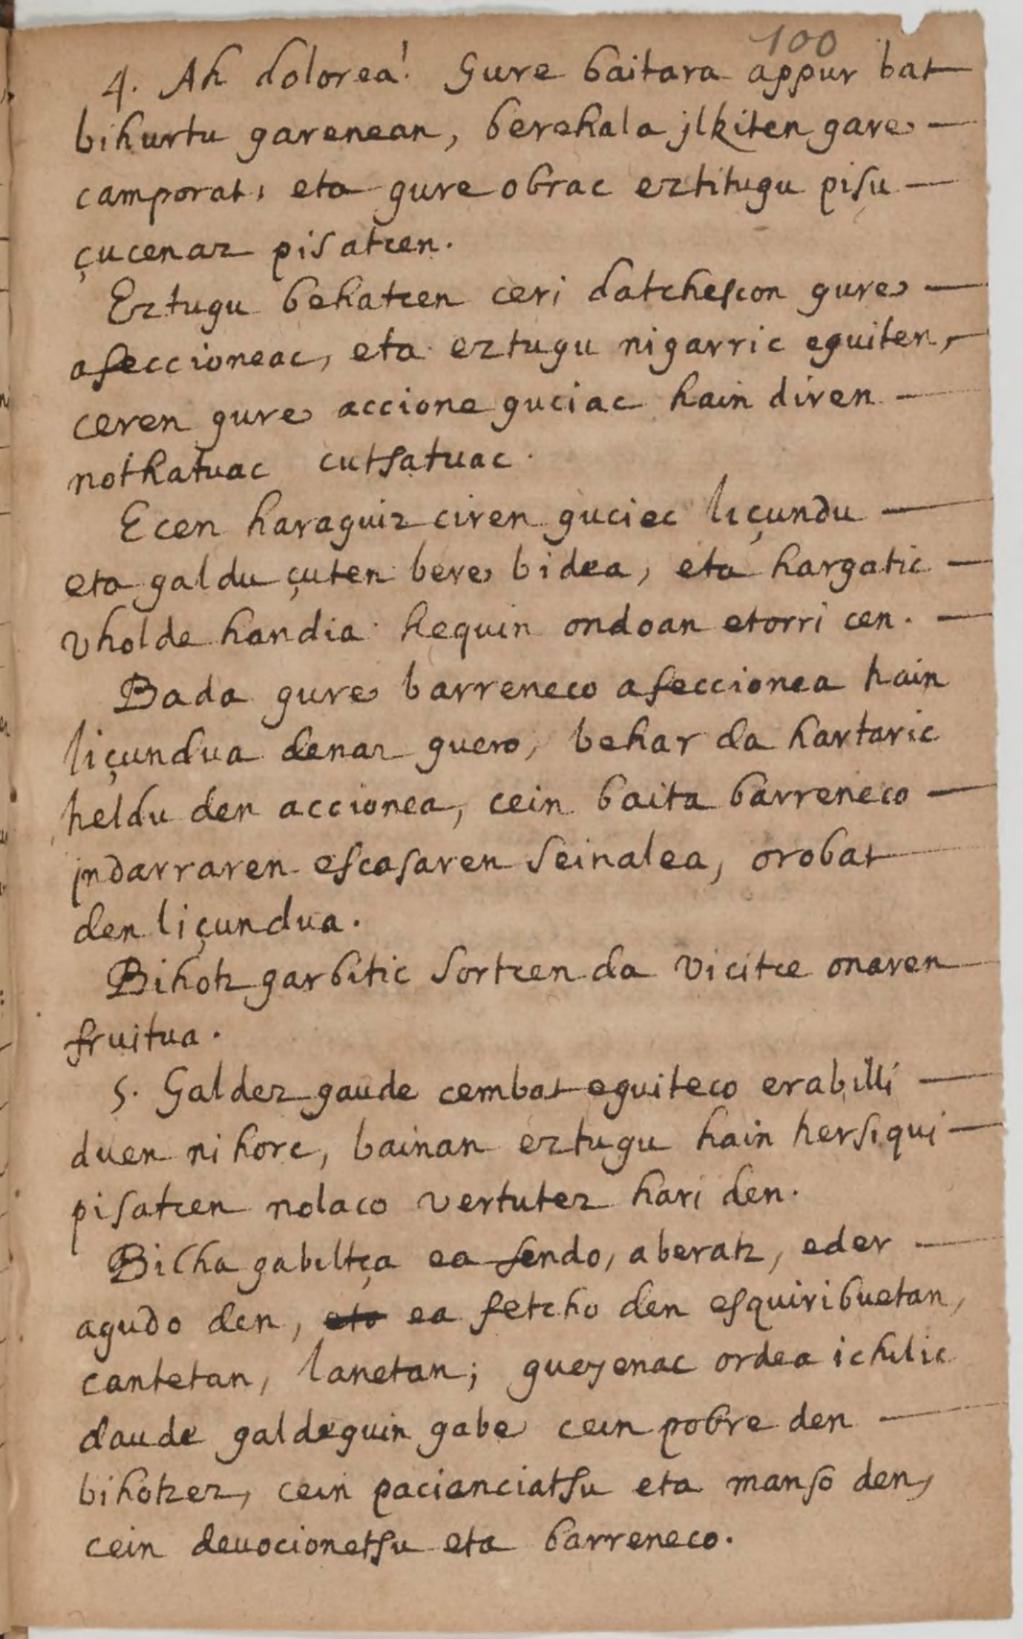 100
4. Ah dolorea! Gure baitara appur bat
bihurtu garenean, berehala jlkiten gare
camporat, eta gure obrac eztitugu pisu
çucenaz pisatcen.
Eztugu behatcen ceri datchescon gure
afeccioneac, eta eztugu nigarric eguiten,
ceren gure accione guciac hain diren
nothatuac cutsatuac.
Ecen haraguiz ciren guciec liçundu
eta galdu çuten bere bidea, eta hargatic
vholde handia hequin ondoan etorri cen.
Bada gure barreneco afeccionea hain
liçundua denaz guero, behar da hartaric
heldu den accionea, cein baita barreneco
jndarraren escasaren seinalea, orobat
den liçundua.
Bihotz garbitic sortcen da vicitce onaren
fruitua.
5. Galdez gaude cembat eguiteco erabilli
duen nihorc, bainan eztugu hain hersiqui
pisatcen nolaco vertutez hari den.
Bilha gabiltça ea sendo, aberatz, eder
agudo den, eta ea fetcho den esquiribuetan,
cantetan, lanetan; gueyenac ordea ichilic
daude galdeguin gabe cein pobre den
bihotzez, cein pacianciatsu eta manso den,
cein deuocionetsu eta barreneco.